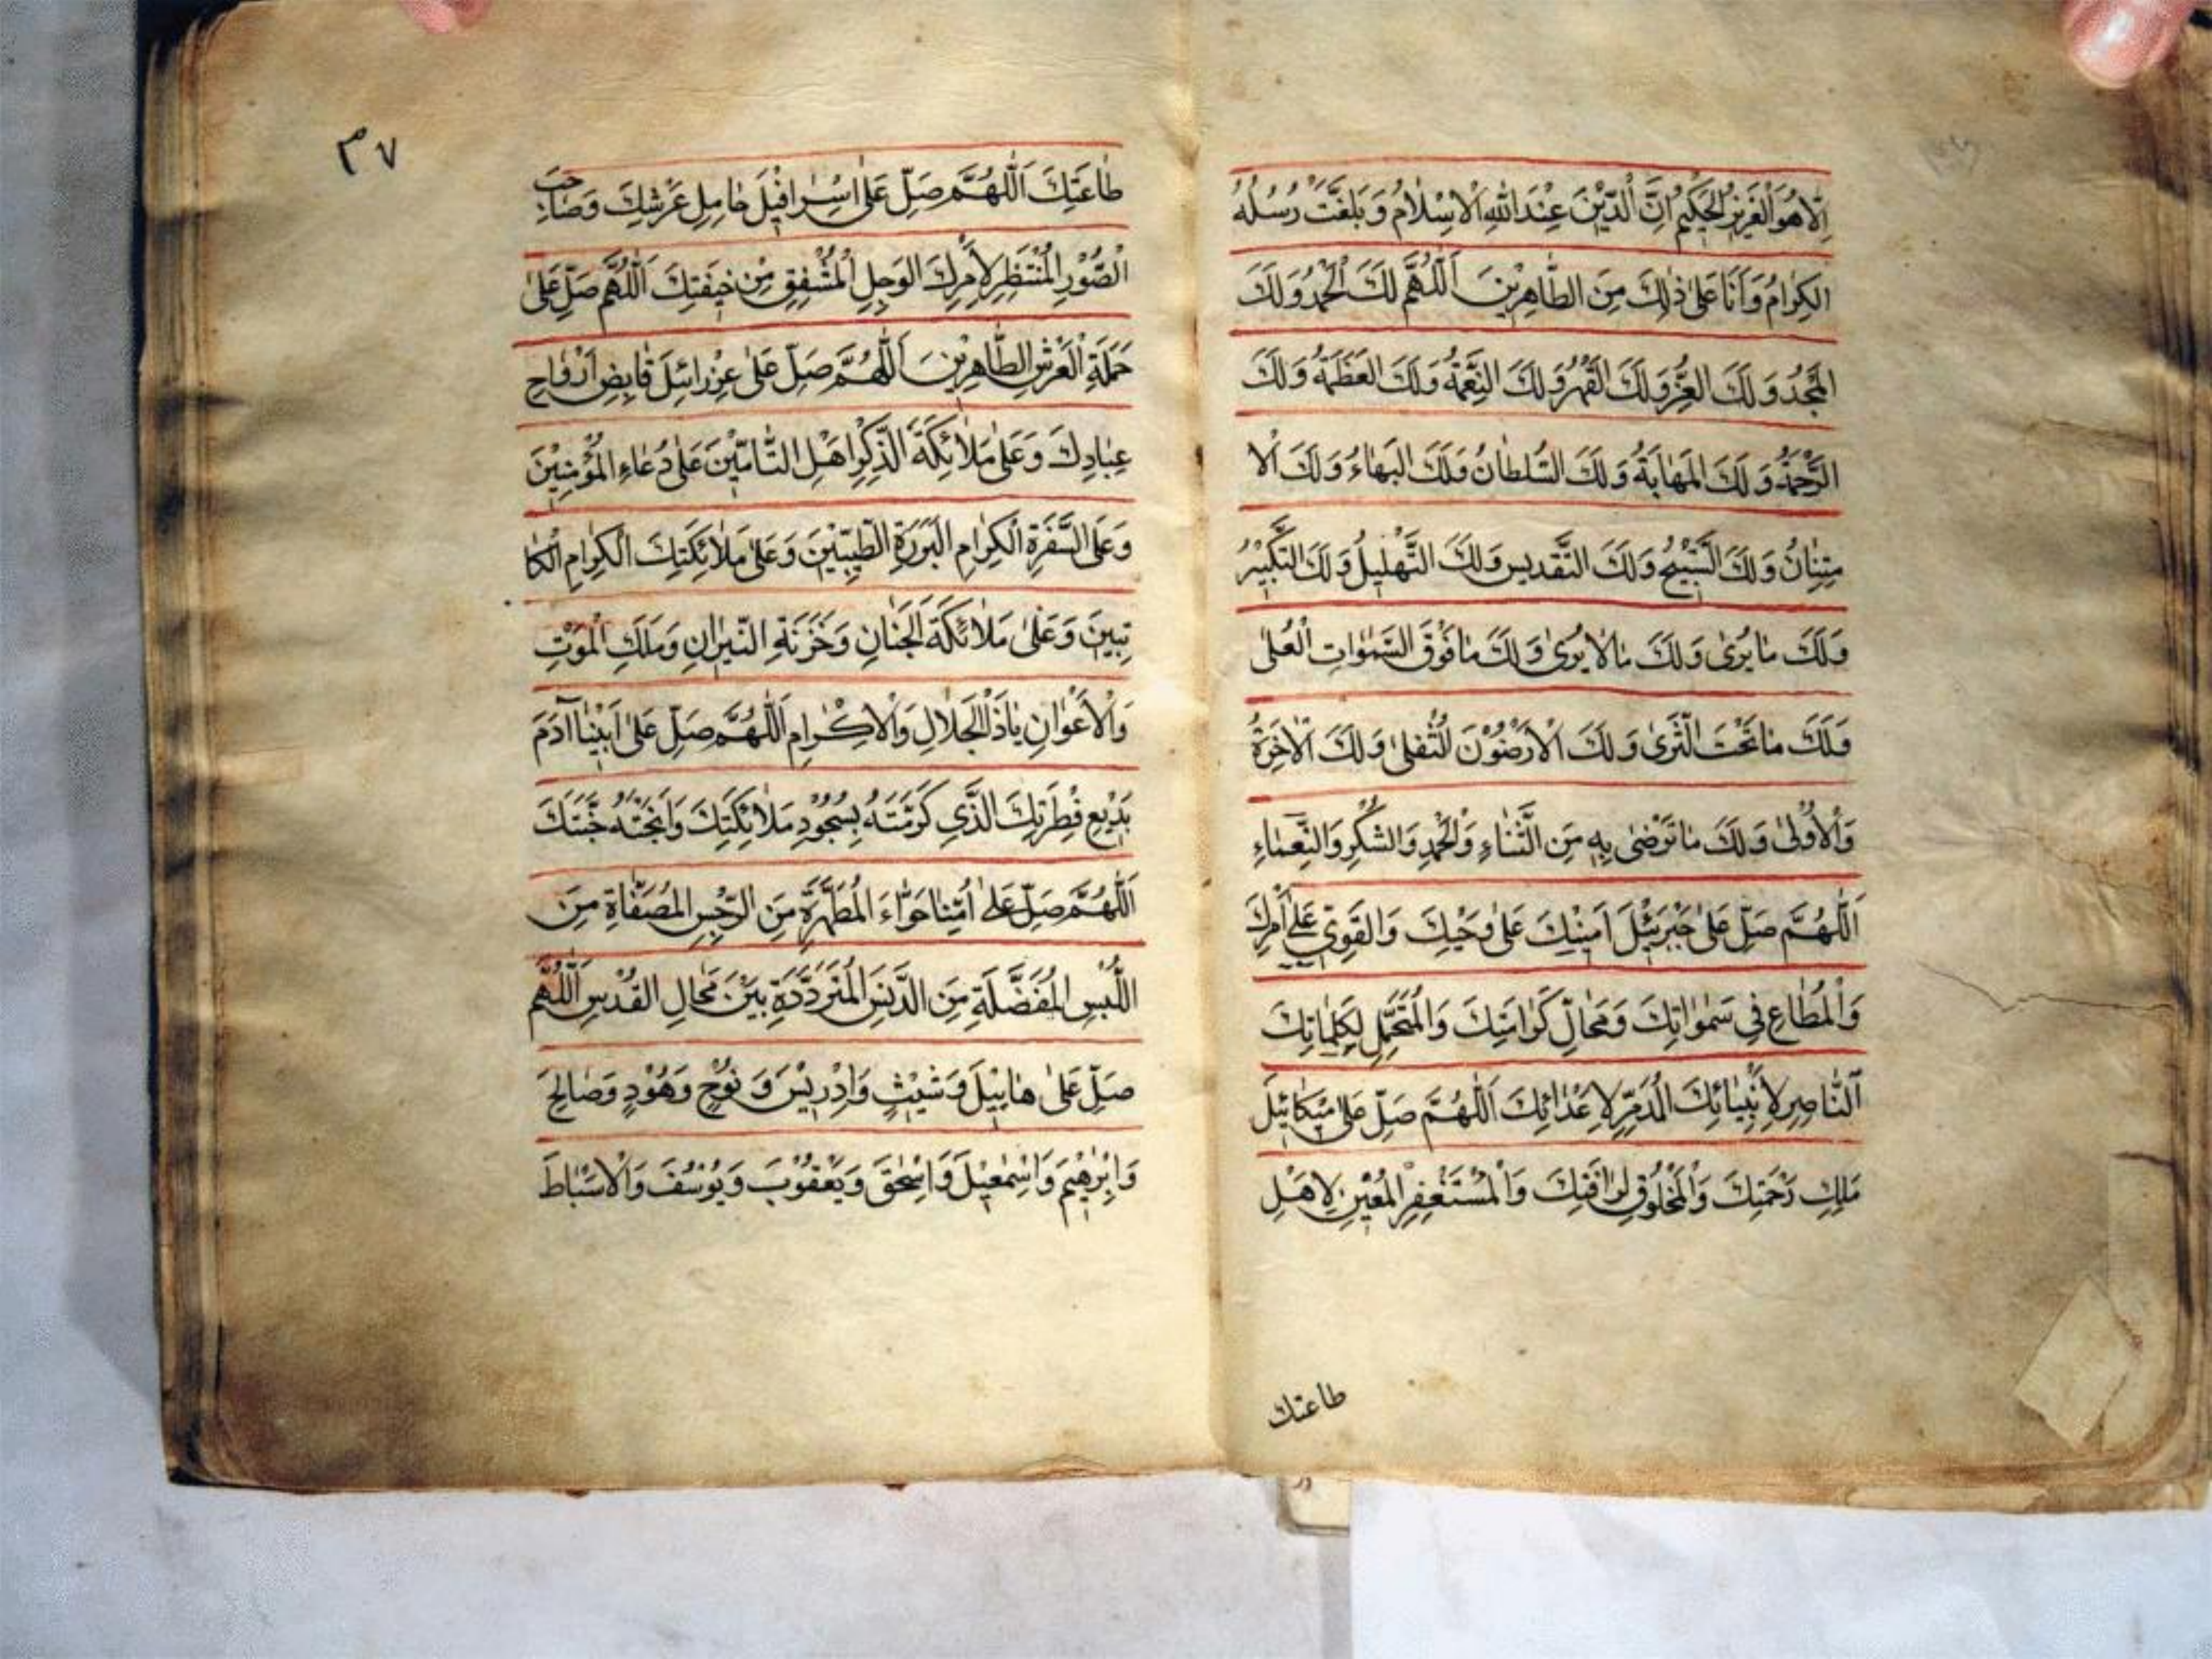 اِلّا هُوَ الْعَزِيزُ الْحَكِيمُ اِنَّ الدِّيْنَ عِنْدَ اللهِ الْاِسْلامُ وَ بَلَّغَتْ رُسُلُهُ
الكِرامُ وَ اَنَا عَلىٰ ذٰلِكَ مِنَ الطَّاهِرِيْنَ اَللّٰهُمَّ لَكَ الْحَمْدُ وَ لَكَ
الْمَجْدُ وَ لَكَ العِزُّ وَ لَكَ القَهْرُ وَ لَكَ النِّعْمَةُ وَ لَكَ العَظَمَةُ وَ لَكَ
الرَّحْمَةُ وَ لَكَ المَهابَةُ وَ لَكَ السُّلطانُ وَ لَكَ البَهاءُ وَ لَكَ الْا
مْتِنانُ وَ لَكَ التَّسْبِيْحُ وَ لَكَ التَّقديس وَ لَكَ التَّهْليلُ وَ لَكَ التَّكْبِيْرُ
وَ لَكَ مٰا يُرىٰ وَ لَكَ مٰالاٰ يُرىٰ وَ لَكَ مٰا فَوْقَ السَّمٰوٰاتِ الْعُلىٰ
وَ لَكَ مٰا تَحْتَ الثَّرىٰ وَ لَكَ الْاَرَضُوْنَ السُّفلىٰ وَ لَكَ الْاٰخِرَةُ
وَ الْاُوْلىٰ وَ لَكَ مٰا تَرْضىٰ بِهِ مِنَ الثَّنٰاءِ وَ الْحَمْدِ وَ الشُّكْرِ وَ النَّعْمٰاءِ
اَللّٰهُمَّ صَلِّ عَلىٰ جَبْرَئِيْلَ اَمِيْنِكَ عَلىٰ وَحْيِكَ وَ القَوِيِّ عَلىٰ اَمْرِكَ
وَ الْمُطٰاعِ فِى سَمٰوٰاتِكَ وَ مَحٰالِّ كَرٰامَتِكَ وَ الْمُتَحَمِّلِ لِكَلِمٰاتِكَ
اَلنّٰاصِرِ لِاَنْبِيٰائِكَ الْمُدَمِّرِ لِاَعْدٰائِكَ اَللّٰهُمَّ صَلِّ عَلىٰ مِيْكٰائِيْلَ
مَلِكِ رَحْمَتِكَ وَ الْمَخْلُوْقِ لِرَافَتِكَ وَ الْمُسْتَغْفِرِ المُعِيْنِ لِاَهْلِ
طاعتك
٣٧
طٰاعَتِكَ اَللّٰهُمَّ صَلِّ عَلىٰ اِسْرٰافِيْلَ حٰامِلِ عَرْشِكَ وَ صٰاحِبِ
الْصُّوْرِ الْمُنْتَظِرِ لِاَمْرِكَ الوَجِلِ الْمُشْفِقِ مِنْ خِيفَتِكَ اَللّٰهُمَّ صَلِّ عَلىٰ
حَمَلَةِ الْعَرْشِ الطّٰاهِرِيْنَ اَللّٰهُمَّ صَلِّ عَلىٰ عِزْرٰائِيلَ قٰابِضِ اَرْوٰاحِ
عِبٰادِكَ وَ عَلىٰ مَلاٰئِكَةِ الذِّكْرِ اَهْلِ التّٰامِّيْنَ عَلىٰ دُعٰاءِ الْمُؤْمِنِيْنَ
وَ عَلَى السَّفَرَةِ الْكِرٰامِ البَرَرَةِ الطَّيِّبِيْنَ وَ عَلىٰ مَلاٰئِكَتِكَ الْكِرٰامِ الْكٰا
تِبِينَ وَ عَلىٰ مَلاٰئِكَةِ الْجَنٰانِ وَ خَزَنَةِ النّيْرٰانِ وَ مَلَكِ الْمَوْتِ
وَ الْاَعْوٰانِ يٰا ذَا الْجَلاٰلِ وَ الْاِكْرٰامِ اَللّٰهُمَّ صَلِّ عَلىٰ اَبِيْنٰا آدَمَ
بَدِيْعِ فِطْرَتِكَ الَّذِي كَرَّمْتَهُ بِسُجُوْدِ مَلاٰئِكَتِكَ وَ اَبَحْتَهُ جَنَّتَكَ
اَللّٰهُمَّ صَلِّ عَلىٰ اُمِّنٰا حَوّٰاءَ المُطَهَّرَةِ مِنَ الرِّجْسِ المُصَفّٰاةِ مِنَ
اللُّبْسِ المُفَضَّلَةِ مِنَ الدَّنَسِ الْمُتَرَدِّدَةِ بَيْنَ مَحٰالِ القُدْسِ اَللّٰهُمَّ
صَلِّ عَلىٰ هٰابِيْلَ وَ شَيْثٍ وَ اِدْرِيْسَ وَ نُوْحٍ وَ هُوْدٍ وَ صٰالِحٍ
وَ اِبْرٰهِيْمَ وَ اِسْمٰعِيْلَ وَ اِسْحٰقَ وَ يَعْقُوْبَ وَ يُوْسُفَ وَ الْاَسْبٰاطَ